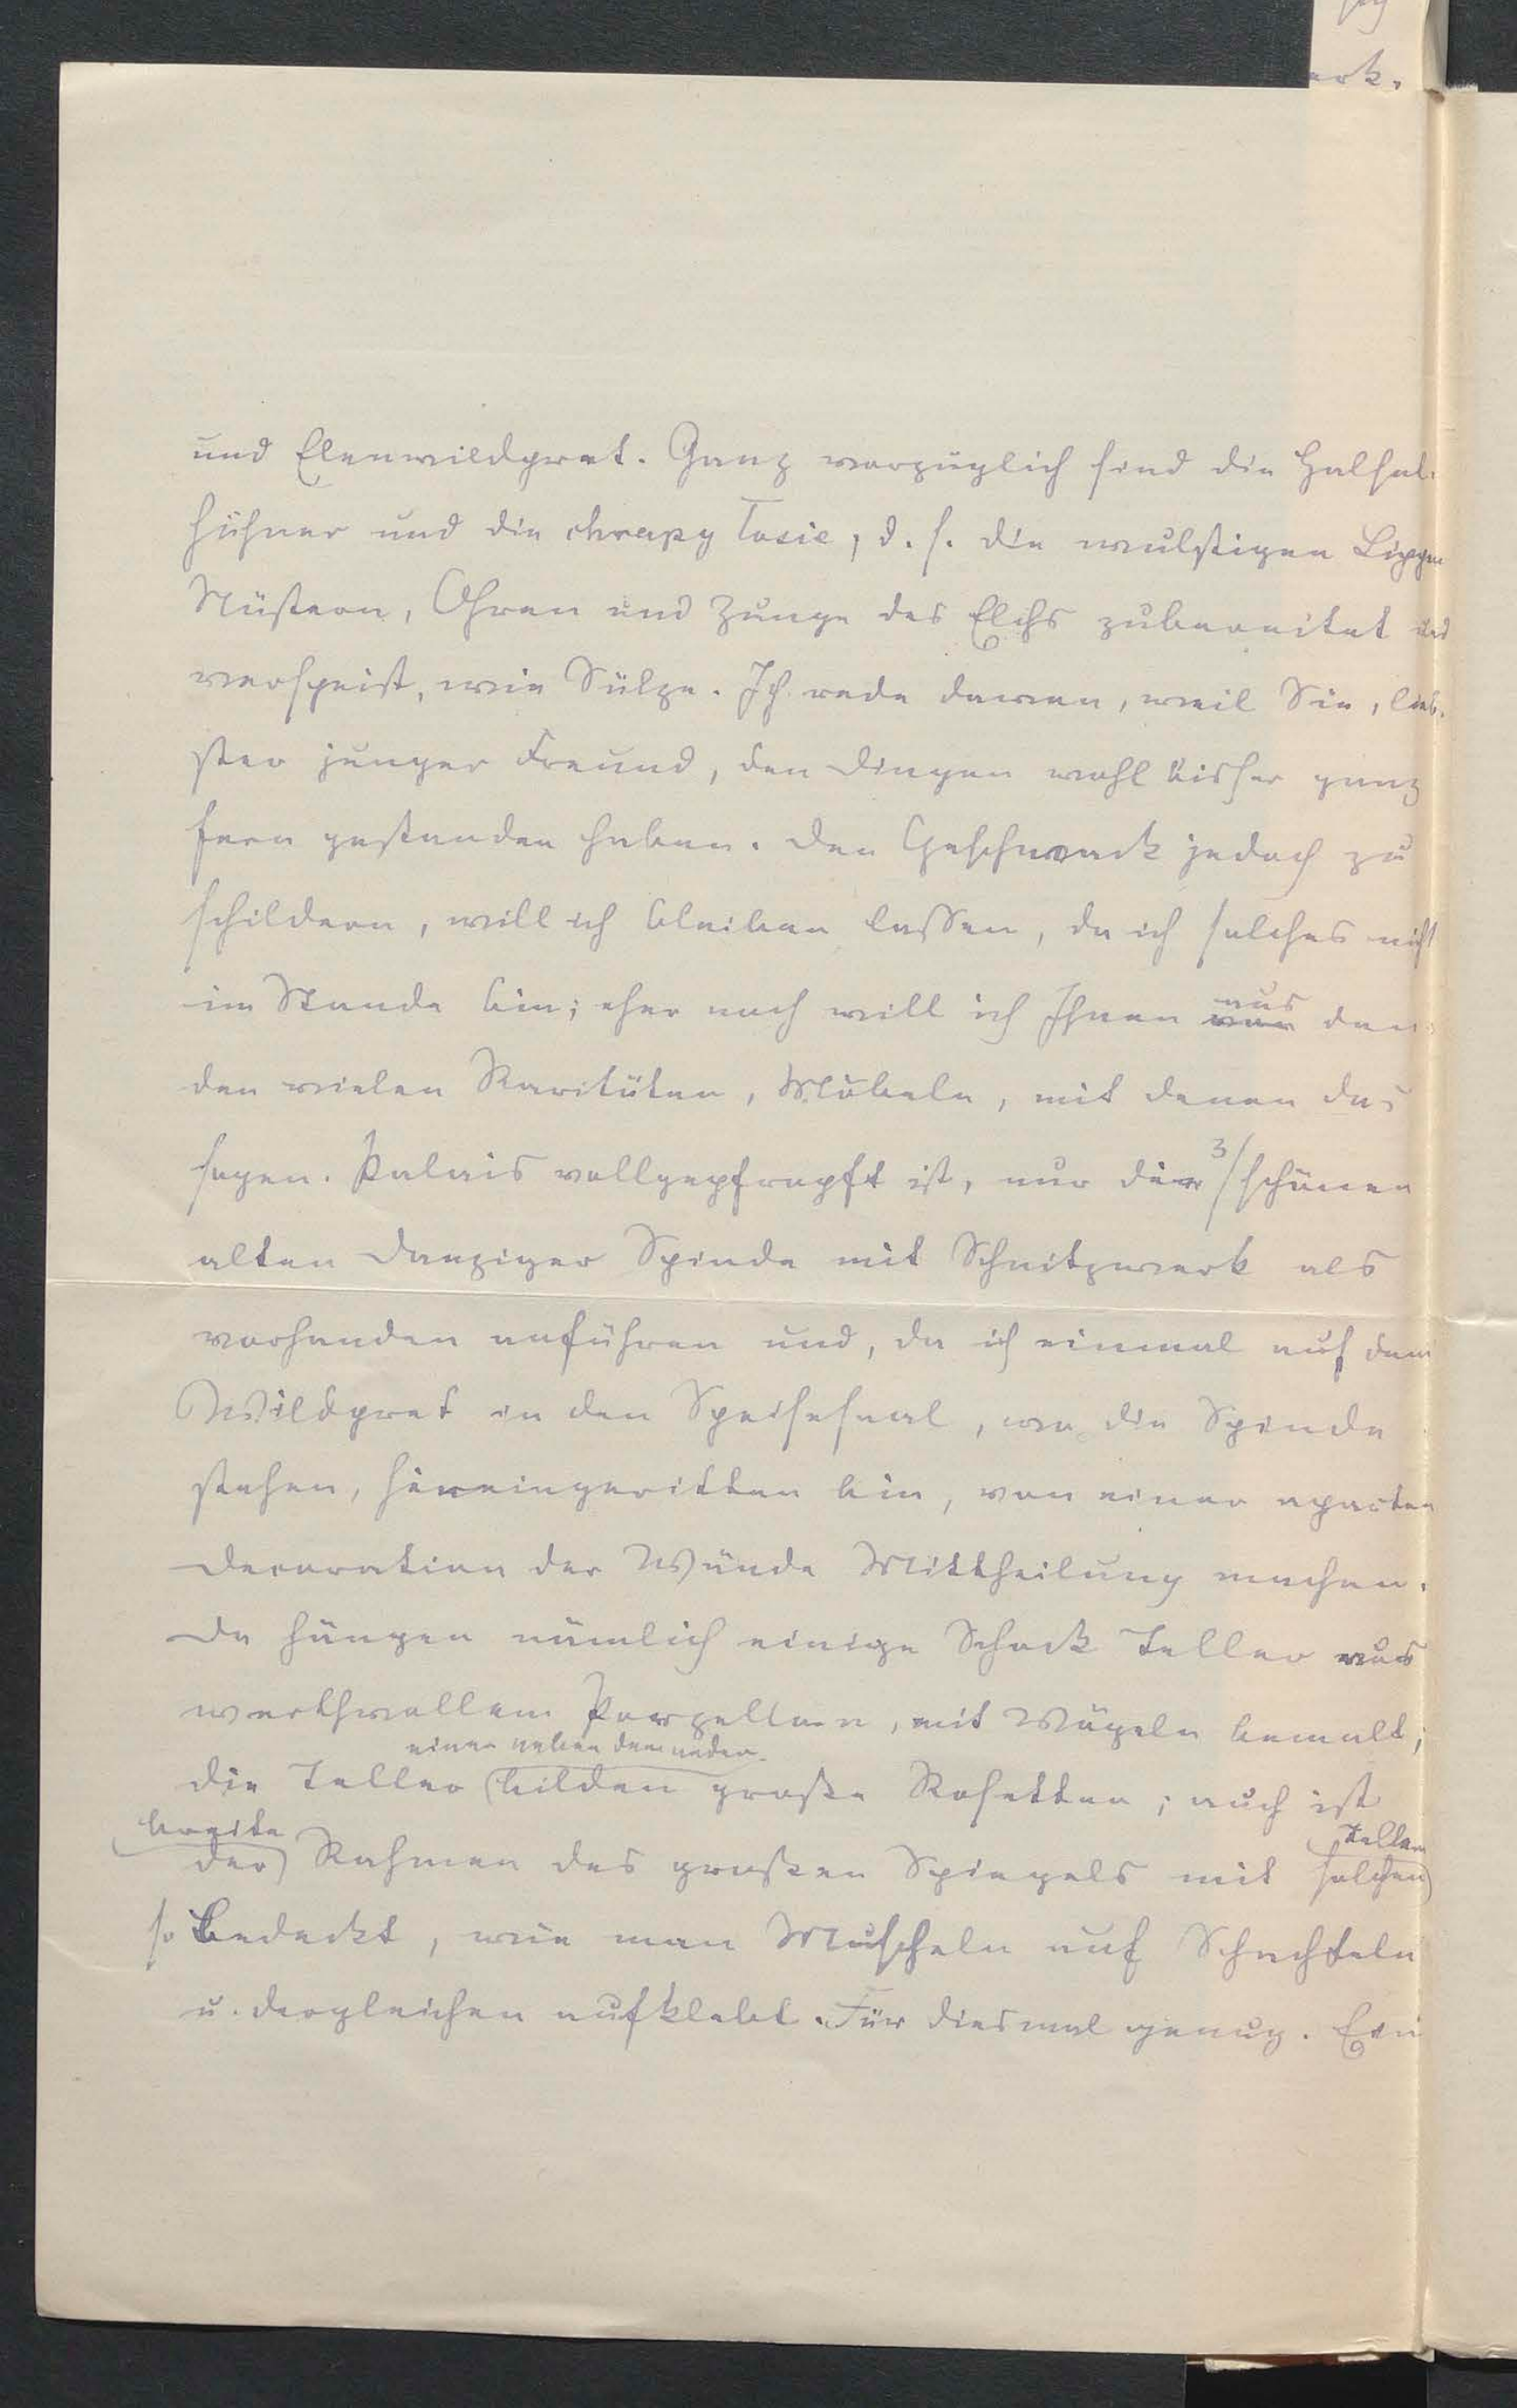 ark.
und Elenwildpret. Ganz vorzüglich sind die Hasel-
hühner und die chrapy łosie, d. h. die wulstigen Lippen
Nüstern, Ohren und Zunge des Elchs zubereitet und
verspeist, wie Sülze. Ich rede davon, weil Sie, lieb-
ster junger Freund, den Dingen wohl bisher ganz
fern gestanden haben. Den Geschmack jedoch zu
schildern, will ich bleiben lassen, da ich solches nicht
im Stande bin; eher noch will ich Ihnen von aus den
den vielen Raritäten, Möbeln, mit denen das
sogen. Palais vollgepfropft ist, nur die 3 schönen
alten Danziger Spinde mit Schnitzwerk als
vorhanden anführen und, da ich einmal auf dem
Wildpret in den Speisesaal, wo die Spinde
stehen, hineingeritten bin, von einer aparten
Decoration der Wände Mittheilung machen.
Da hängen nämlich einige Schock Teller aus
werthvollem Porzellan, mit Vögeln bemalt;
einer neben dem andern
die Teller bilden große Rosetten; auch ist
breite Tellern
der Rahmen des großen Spiegels mit solchen
so bedeckt, wie man Muscheln auf Schachteln
u. dergleichen aufklebt. Für diesmal genug. Ein